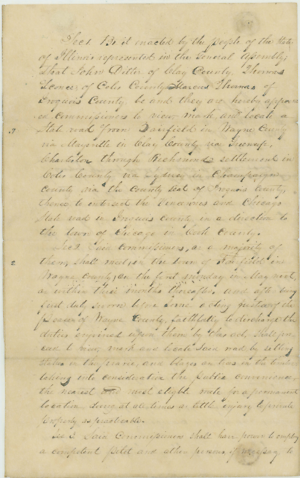 Sec 1 Be it enacted by the people of the State
of Illinois represented in the General Assembly
that John Ditter of Clay County, Thomas
of Coles County Thomas of
Iroquois County be and they are hereby appointed
Commissioners to view mark and locate a
State road from Fairfield in Wayne County
via Maysville in Clay County via
Charleston through Richmans settlement in
Coles County via Sydney in Champaign
County via the County Seat of Iroquois County,
thence to intersect the Vincennes and Chicago
State road in Iroquois County in a direction to
the town of Chicago in Cook County.
Sec 2 Said Commissioners, or a majority of
them, shall meet at the town of Fairfield in
Wayne County, on the first monday in May next,
or within three months thereafter, and after being
first duly sworn before some acting Justice of the
Peace of Wayne County, faithfully to discharge the
duties required of them by this act, shall proceed
to view, mark and locate said road by setting
stakes in the prairie, and blazes on trees in the timber
taking into consideration the public convenience,
the nearest and most eligible route for a permanent
location, doing at all times as little injury to private
property as practicable.
Sec 3 Said Commissioners shall have power to employ
a competent and other persons necessary to